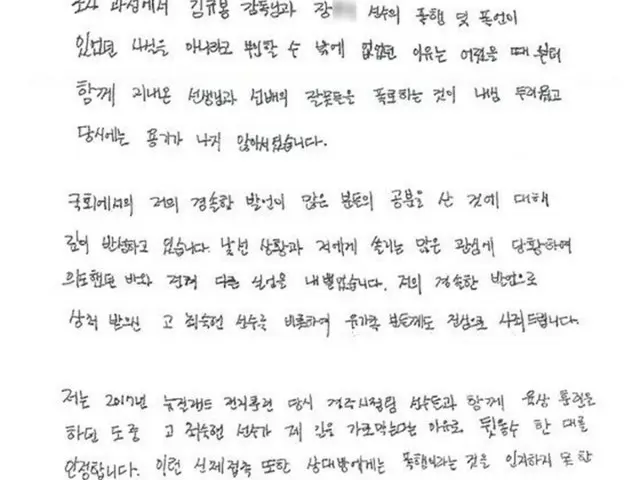 조사 과정에서 김규봉 감독님과 장 선수의 폭행 및 폭언이
있었던 사실을 아니라고 부인할 수 밖에 없었던 이유는 어렸을 때 부터
함께 지내온 선생님과 선배의 잘못들을 폭로하는 것이 내심 두려웠고
당시에는 용기가 나지 않아서였습니다.
국회에서의 저의 경솔한 발언이 많은 분들의 공분을 산 것에 대해
깊이 반성하고 있습니다. 낯선 상황과 저에게 쏠리는 많은 관심에 당황하여
의도했던 바와 전혀 다른 실언을 내뱉었습니다. 저의 경솔한 발언으로
상처 받으신 고 최숙현 선수를 비롯하여 유가족 분들께도 진심으로 사죄드립니다.
저는 2017년 뉴질랜드 전지훈련 당시 경주시청팀 선수들과 함께 육상 훈련을
하던 도중 고 최숙현 선수가 제 길을 가로막는다는 이유로 뒷통수 한 대를
인정합니다. 이런 신체접촉 또한 상대방에게는 폭행이라는 것을 인지하지 못한